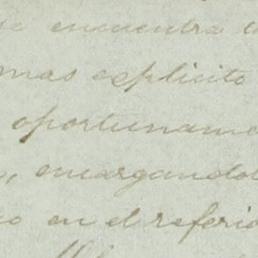 se encuentra
mas esplicito
oportuname
, encargandol
o en el referid